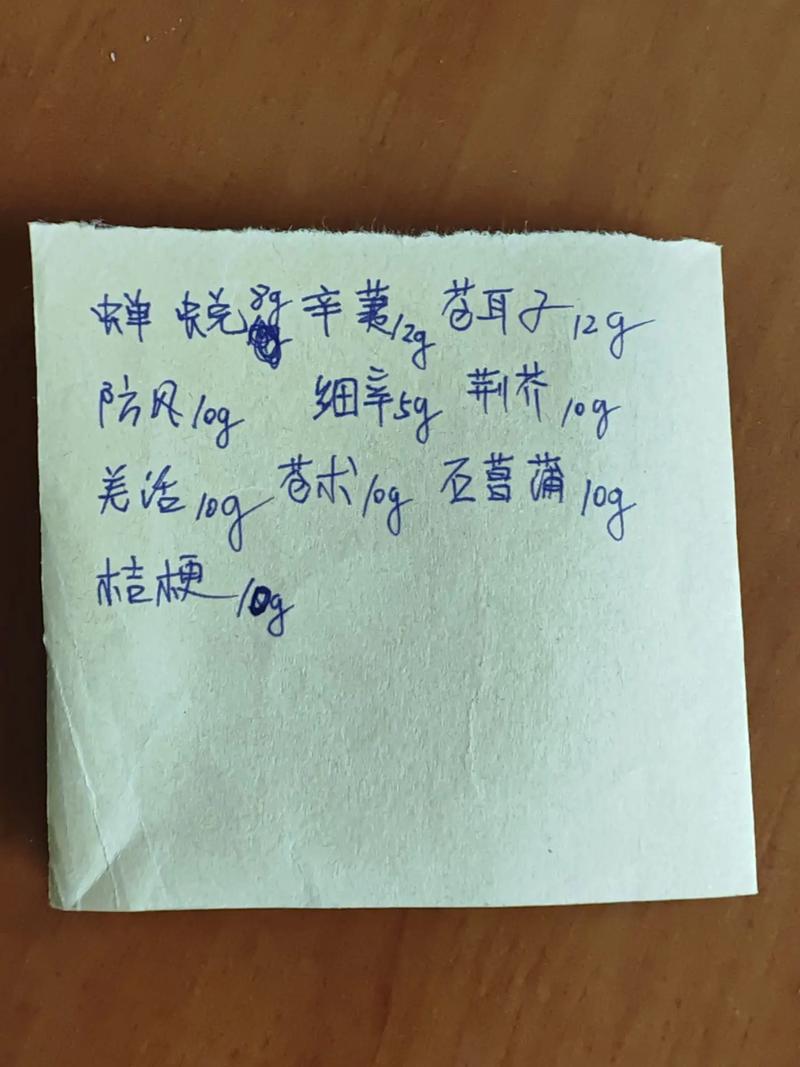 蝉蜕8g 辛荑12g 苍耳子12g
防风10g 细辛5g 荆芥10g
羌活10g 苍术10g 石菖蒲10g
桔梗10g